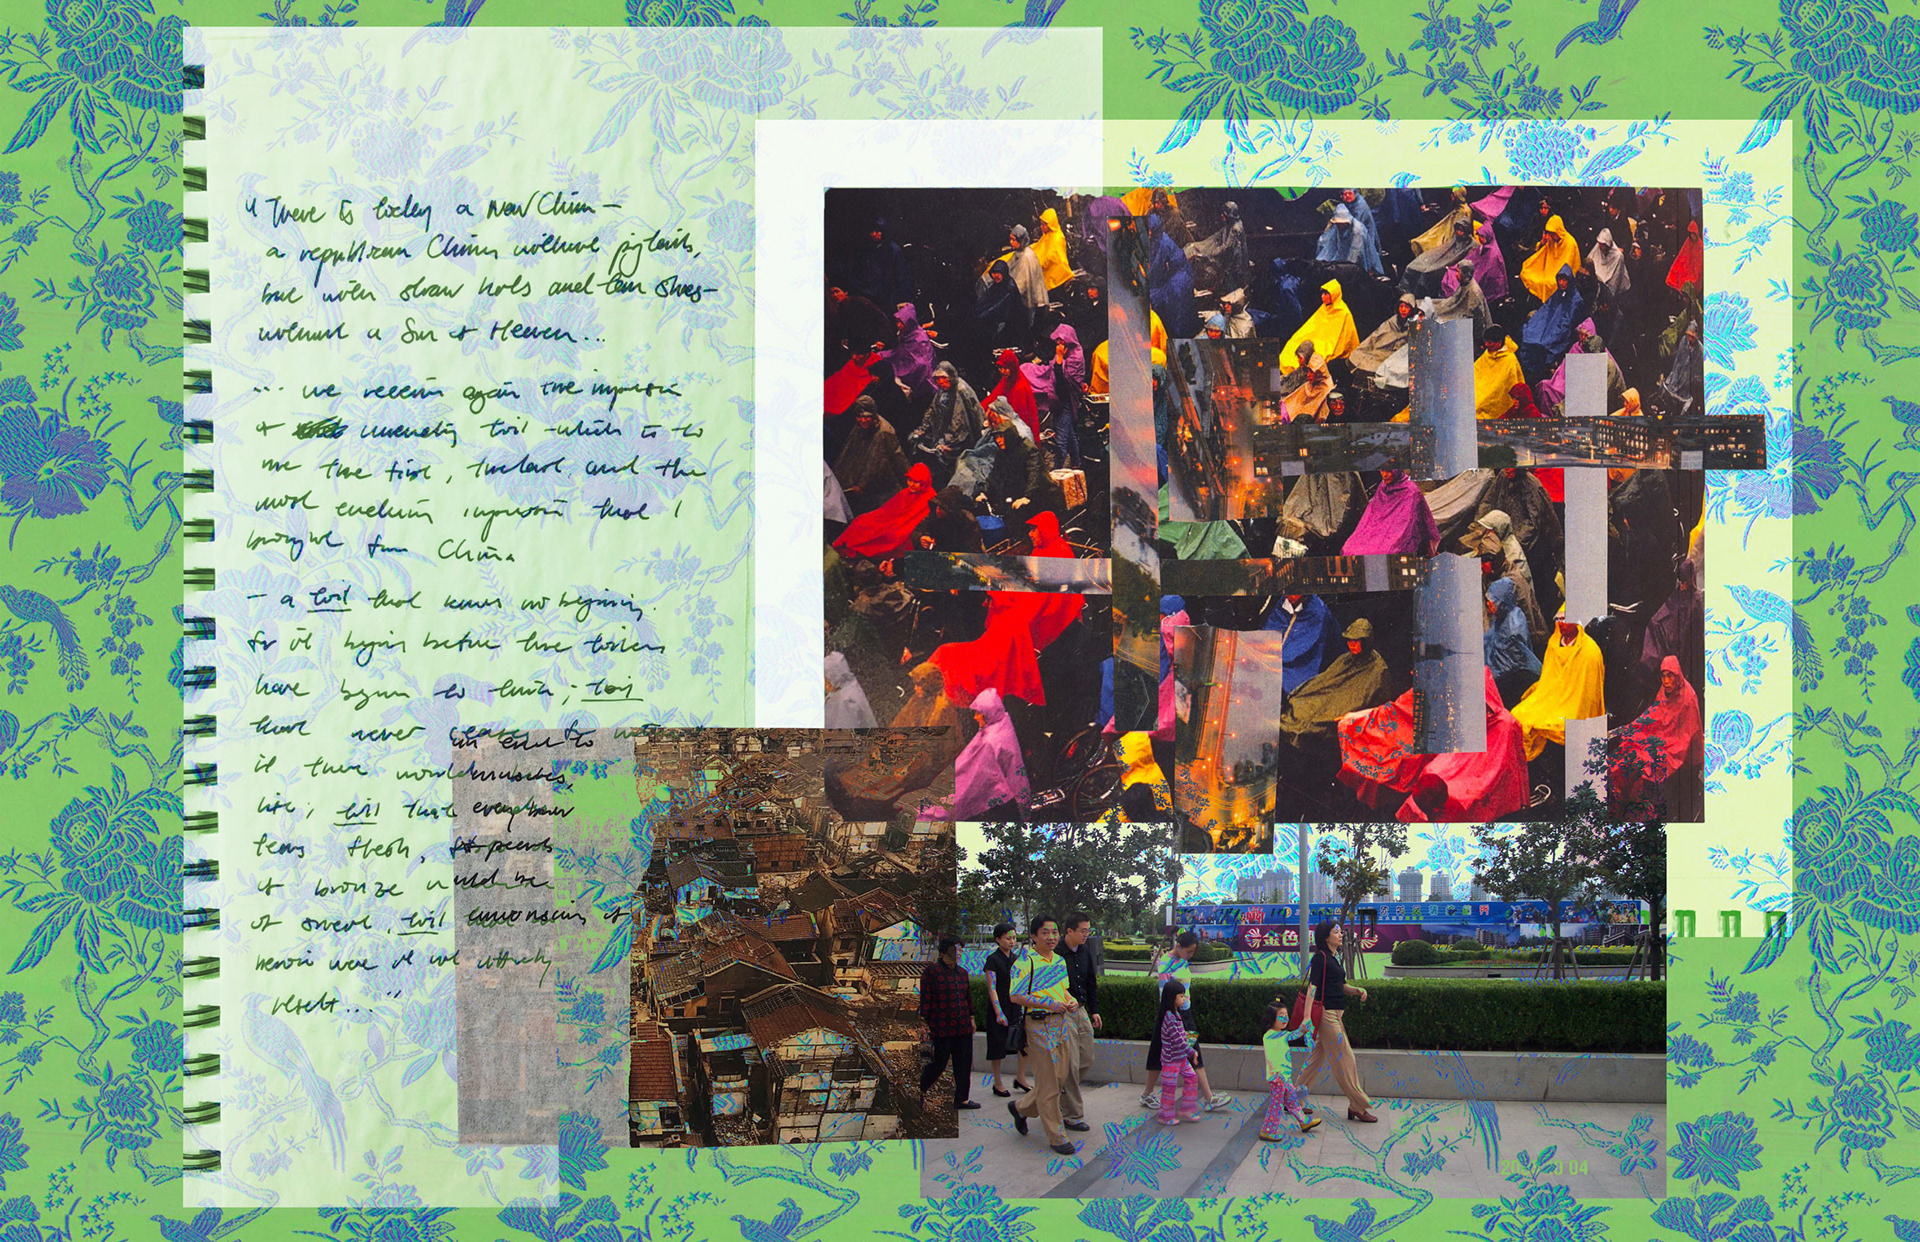 "There is today a New China –
a republican China without pigtails,
but with straw hats and tan shoes –
without a Son of Heaven...
... we receive again the impression
of unending toil which is to
me the first, the last and the
most enduring impression that I
brought from China
– a toil that knows no beginning,
for it begins before the toilers
have begun to think; toil
have never for
if there would muscles,
life; toil that every hour
tears flesh,
if bronze would be
of sweat, toil of
heroic were it not utterly
..."
金色
04